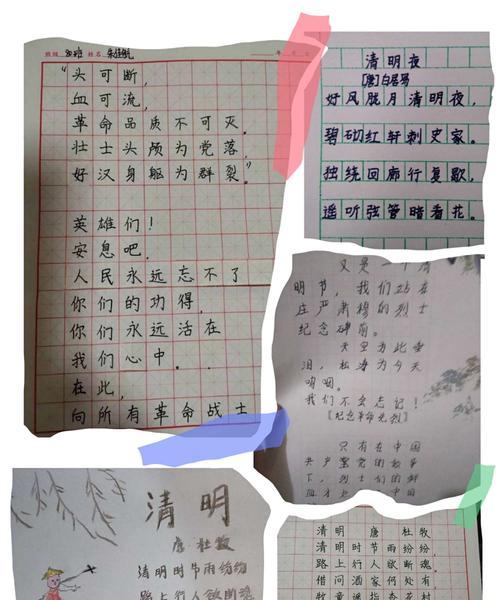 班级 姓名
年 月 日
“头可断，
血可流，
革命品质不可灭。
壮士头颅为党落，
好汉身躯为群裂。”
英雄们！
安息吧，
人民永远忘不了
你们的功得，
你们永远活在
我们心中。
在此，
向所有革命战士
清明夜
[唐]白居易
好风胧月清明夜，
碧砌红轩刺史家。
独绕回廊行复歇，
遥听弦管暗看花。
又是一个清
明节，我们站在
庄严肃穆的烈士
纪念碑前。
天空为此垂
泪，松涛为今天
呜咽。
我们不会忘记！
[纪念革命先烈]
只有在中国
共产党的领导
下，烈士们的鲜
血才 中国
清明
唐 杜牧
清明时节雨纷纷
路上行人欲断魂
清明 唐 杜牧
清明时节雨纷纷，
路上行人欲断魂。
借问酒家何处有
牧童遥指杏花村